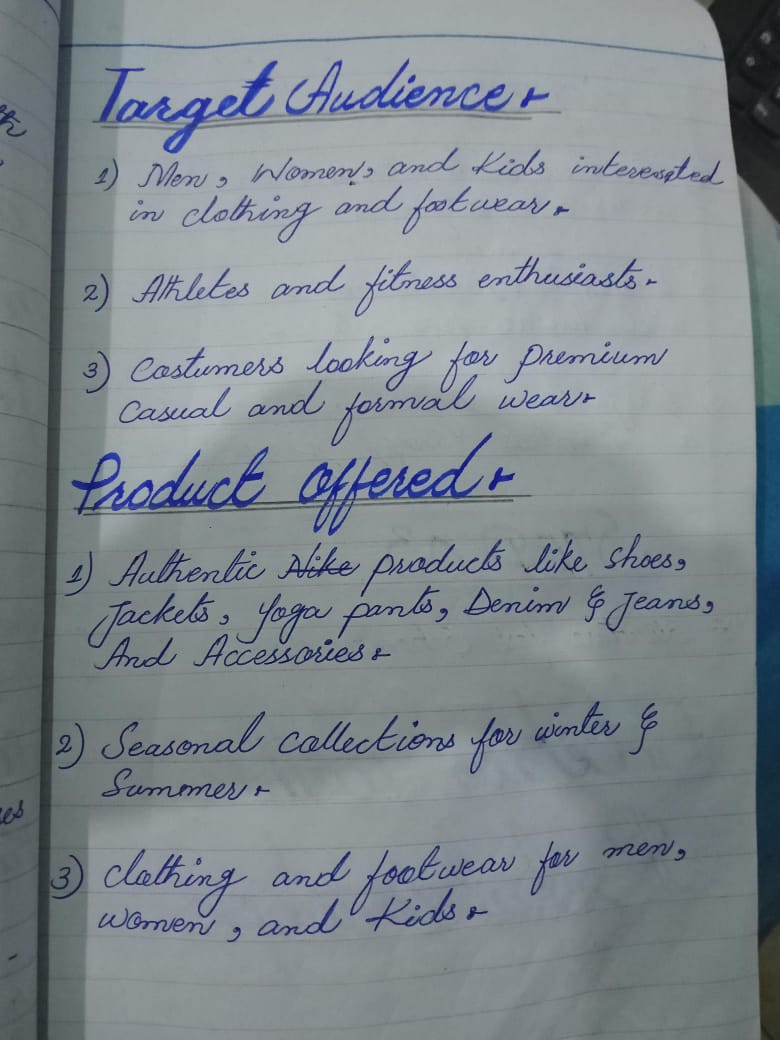 Target Audience.
1) Men, Women, and Kids interersted
in clothing and footwear.
2) Athletes and fitness enthusiasts.
3) Costumers looking for premium
Casual and formal wear.
Product Offered.
1) Authentic Nike products like shoes,
Jackets, Yoga pants, Denim & Jeans,
And Accessories.
2) Seasonal collections for winter &
Summer.
3) Clothing and footwear for men,
women, and Kids.